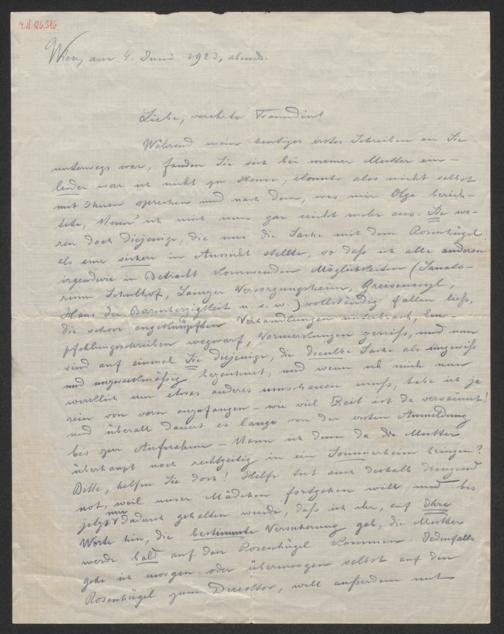 Wien, am 4. Juni 1923, abends.
Liebe, verehrte Freundin!
Während mein heutiger erstes Schreiben an Sie
unterwegs war, fanden Sie sich bei meiner Mutter ein –
leider war ich nicht zu Hause, konnte also nicht selbst
mit Ihnen sprechen und nach dem, was mir Olga berich-
tete, kenn' ich mich nun gar nicht mehr aus. Sie wa-
ren doch diejenige, die uns die Sache mit dem Rosenhügel
als eine sichere in Aussicht stellte, so daß ich alle anderen
irgendwie in Betracht kommenden Möglichkeiten (Sanato-
rium Schulhof, Lainzer Versorgungsheim, Greisenasyl,
Haus der Barmherzigkeit u. s. w.) vollständig fallen ließ,
die schon angeknüpften Verhandlungen unterbrach, Em-
pfehlungsschreiben wegwarf, Vormerkungen zerriss, und nun
sind auf einmal Sie diejenige, die dieselbe Sache als ungewiss
und unzweckmäßig bezeichnet, und wenn ich mich nun
wirklich um etwas anderes umschauen muß, habe ich ja
rein von vorn anzufangen – wie viel Zeit ist da versäumt!
und überall dauert es lange von der ersten Anmeldung
bis zur Aufnahme – Kann ich denn da die Mutter
überhaupt noch rechtzeitig in ein Sommerheim bringen?
Bitte, helfen Sie doch! Hilfe tut auch deshalb dringend
not, weil unser Mädchen fortgehen will und bis
jetzt nur dadurch gehalten wurde, daß ich ihr, auf Ihre
Worte hin, die bestimmte Versicherung gab, die Mutter
werde bald auf den Rosenhügel kommen. Jedenfalls
gehe ich morgen oder übermorgen selbst auf den
Rosenhügel zum Direktor, will außerdem mit